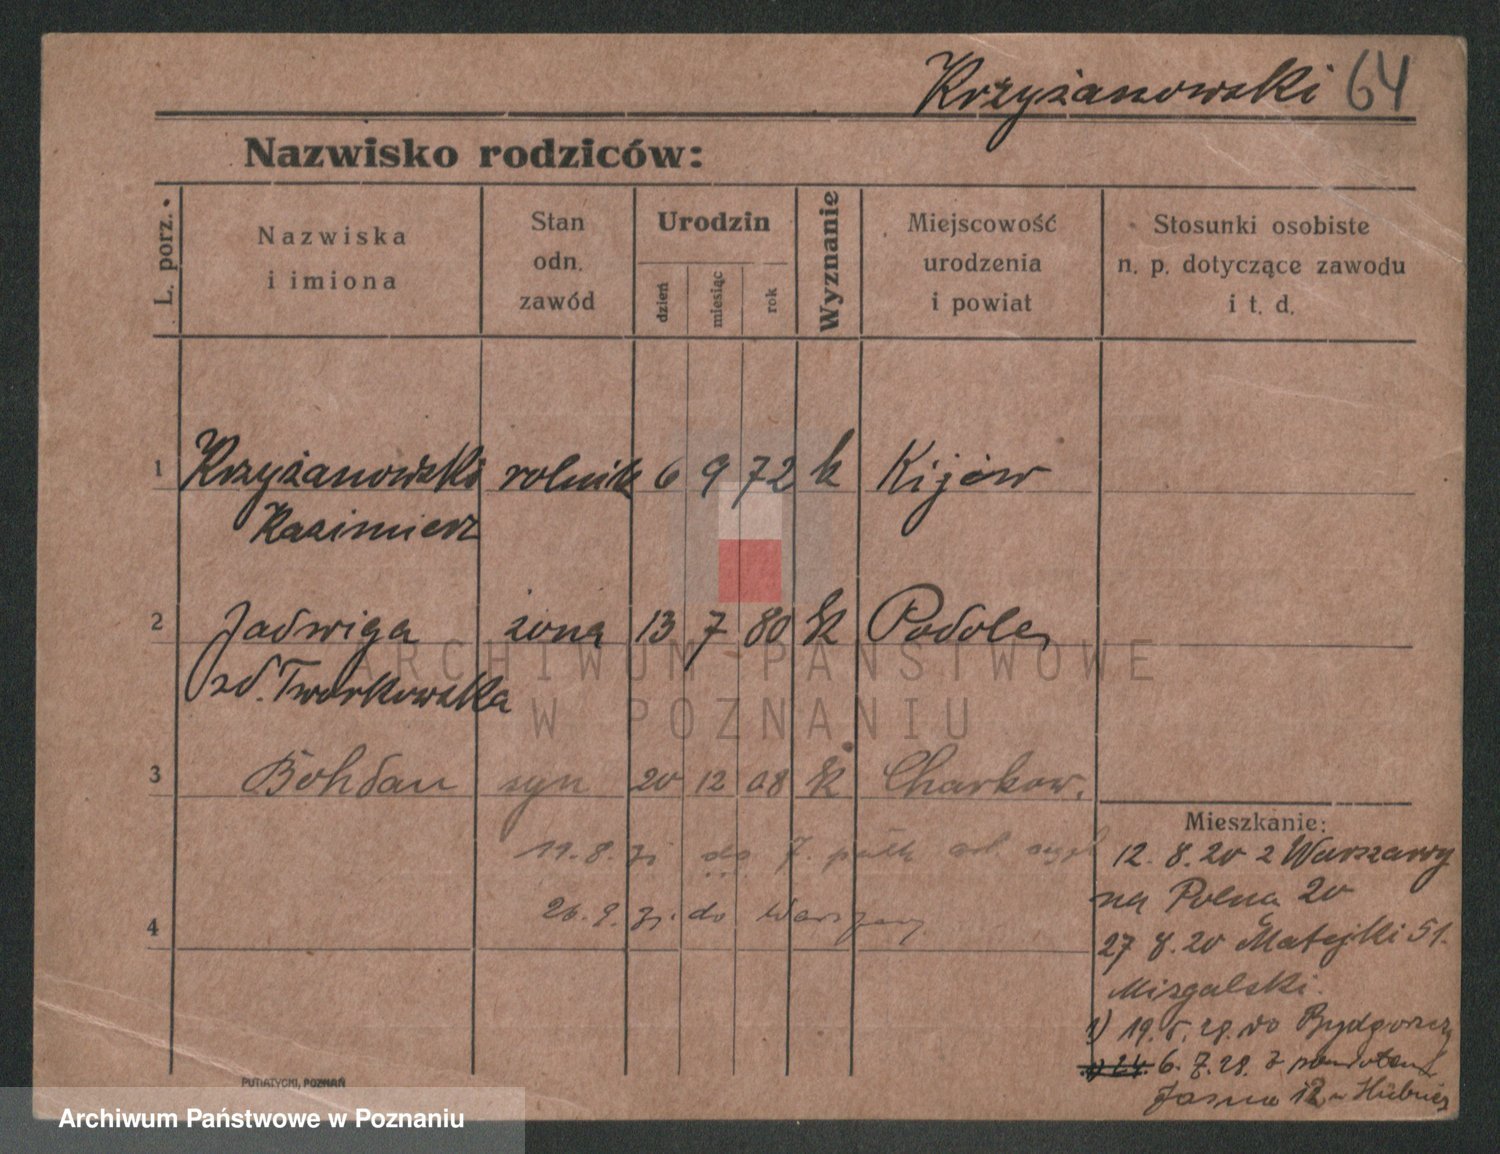 Krzyżanowski 64
Nazwisko rodziców:
L. porz.
Nazwiska
i imiona
Stan
odn.
zawód
Urodzin
dzień
miesiąc
rok
Wyznanie
Miejscowość
urodzenia
i powiat
Stosunki osobiste
n. p. dotyczące zawodu
i t. d.
1 Krzyżanowski rolnik 6 9 72 k Kijów
Kazimierz
2 Jadwiga żona 13 7 80 k Podole
zd. Tworkowska
3 Bohdan syn 20 12 08 k Charkow.
19.8. do 7.
4 26.9. do Warszawy
Mieszkanie:
12.8.20 z Warszawy
na Polna 20
27 8.20 Matejki 51.
Mizgalski.
1) 19.5.28. do Bydgoszczy
6.7.28. z powrotem
Jasna 12
PUTIATYCKI, POZNAŃ
ARCHIWUM PAŃSTWOWE
W POZNANIU
Archiwum Państwowe w Poznaniu